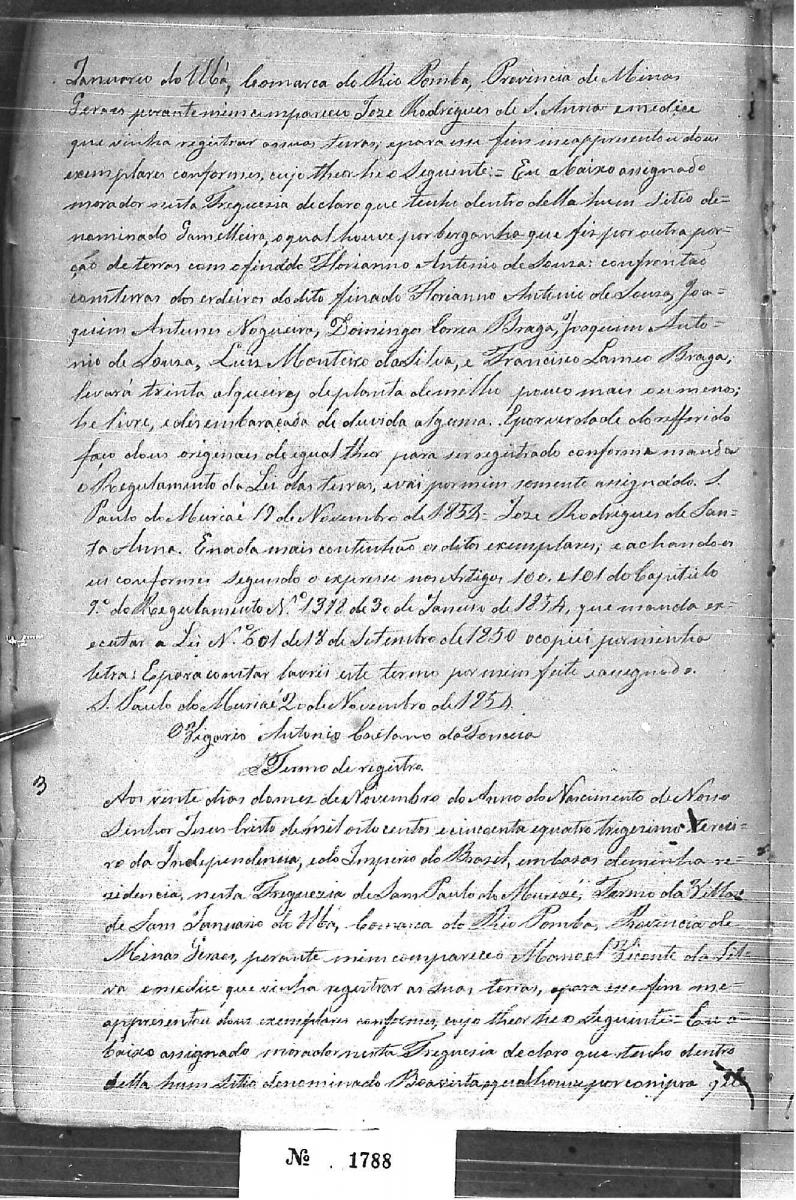 Januario do Ubá, Comarca do Rio Pomba, Provincia de Minas
Geraes perante mim compareceo Joze Rodrigues de S. Anna e me dice
que vinha registrar as suas terras, e para esse fim me appresentou dous
exemplares conformes, cujo theor he o seguente:= Eu abaixo assignado
morador nesta Freguesia declaro que tenho dentro della hum sitio de=
nominado Gamelleira, o qual houve por berganha que fiz por outra por=
ção de terras com o finado Florianno Antonio de Souza: confrontão
com terras dos erdeiros do dito finado Florianno Antonio de Souza, Joa=
quim Antunes Nogueira, Domingos Correa Braga, Joaquim Anto=
nio de Souza, Luiz Monteiro da Silva, e Francisco Lameo Braga;
levará trinta alqueires de planta de milho pouco mais ou menos;
he livre, e desembaraçada de duvida alguma. E por verdade do refferido
faço dous originaes de igual theor para ser registrado conforme manda
o Regulamento da Lei das terras, e vai por mim somente assignado. S.
Paulo do Muriaé 19 de Novembro de 1854= Joze Rodrigues de San=
ta Anna. E nada mais continhão os ditos exemplares; e achando os
eu conformes segundo o expresso nos Artigos 100. e 101 do Capitulo
9.º do Regulamento N.º 1318 de 30 de Janeiro de 1854, que manda ex=
ecutar a Lei N.º 601 de 18 de Setembro de 1850 o copiei por minha
letra: E para constar lavrei este termo por mim feito e assignado.
S. Paulo do Muriaé 20 de Novembro de 1854
O Vigario Antonio Caetano da Fonseca
Termo de registro.
3
Aos vente dias do mez de Novembro do Anno do Nascimento de Nosso
Senhor Jesus Cristo de mil oito centos e cincoenta e quatro trigesimo tercei=
ro da Independencia, e do Imperio do Brasil, em casas de minha re=
zidencia, nesta Freguezia de Sam Paulo do Muriaé, Termo da Villa
de Sam Januario do Ubá, Comarca do Rio Pomba, Provencia de
Minas Geraes, perante mim compareceo Manoel Vicente da Sil=
va e me dice que vinha registrar as suas terras, e para esse fim me
appresentou dous exemplares conformes, cujo theor he o seguente= Eu a
baixo assignado morador nesta Freguesia declaro que tenho dentro
della hum sitio denominado Boavista, o qual houve por compra que
Nº 1788